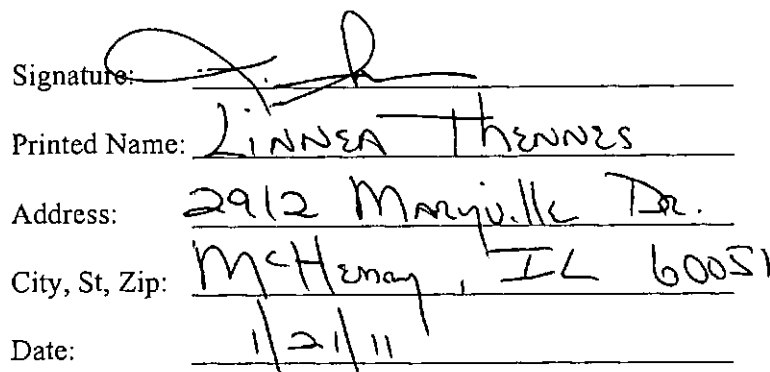 Signature:
Printed Name: LINNEA THENNES
Address: 2912 Maryville Dr.
City, St, Zip: McHenry, IL 60051
Date: 1/21/11